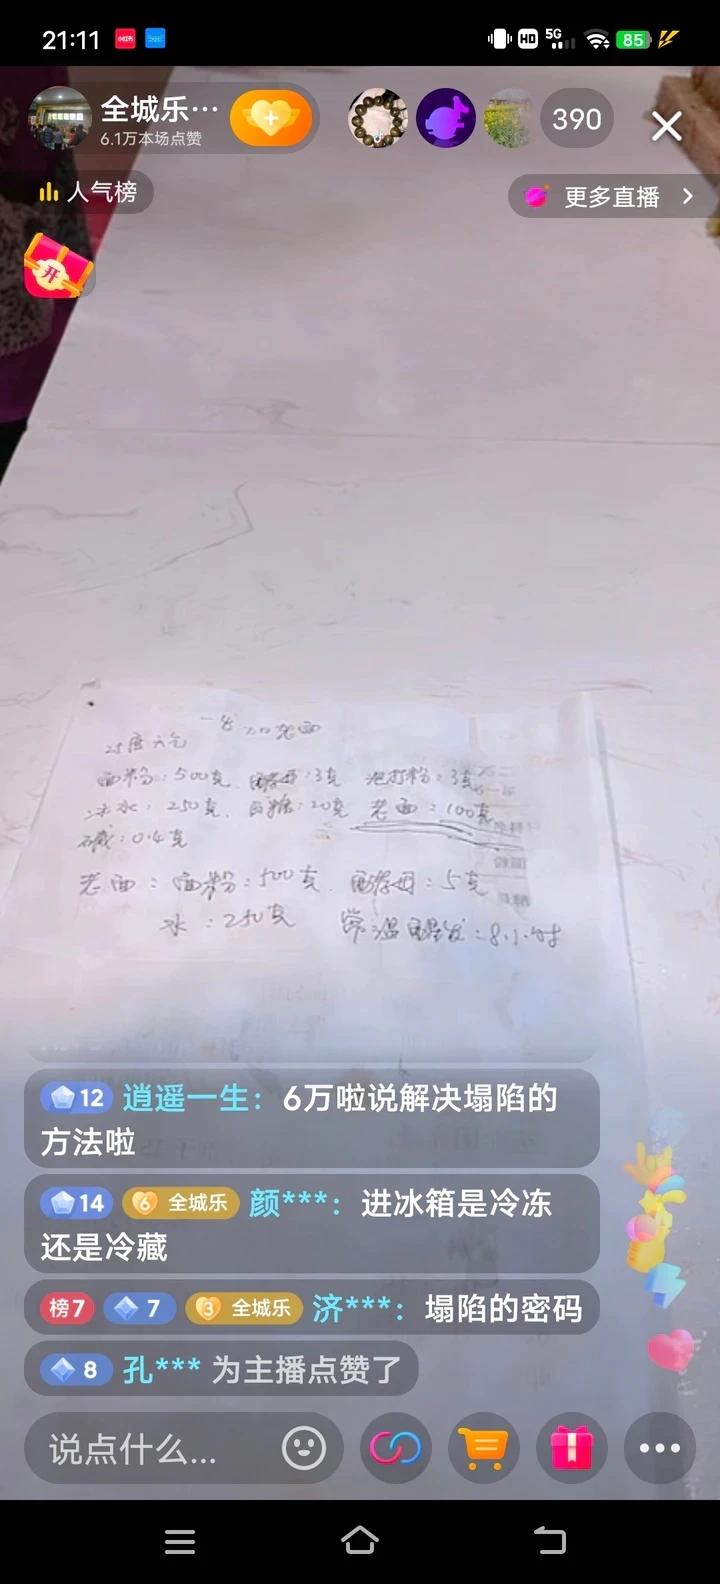 21:11
HD
5G
85
全城乐…
6.1万本场点赞
390
人气榜
更多直播
开
一发加老面
25度天气
面粉:500克 酵母:3克 泡打粉:3克
冰水:250克、白糖:20克 老面:100克
碱:0.4克
老面:面粉:500克、酵母:5克
水:250克 常温醒发:8小时
12 逍遥一生: 6万啦说解决塌陷的
方法啦
14 6 全城乐 颜***: 进冰箱是冷冻
还是冷藏
榜7 7 3 全城乐 济***: 塌陷的密码
8 孔*** 为主播点赞了
说点什么...